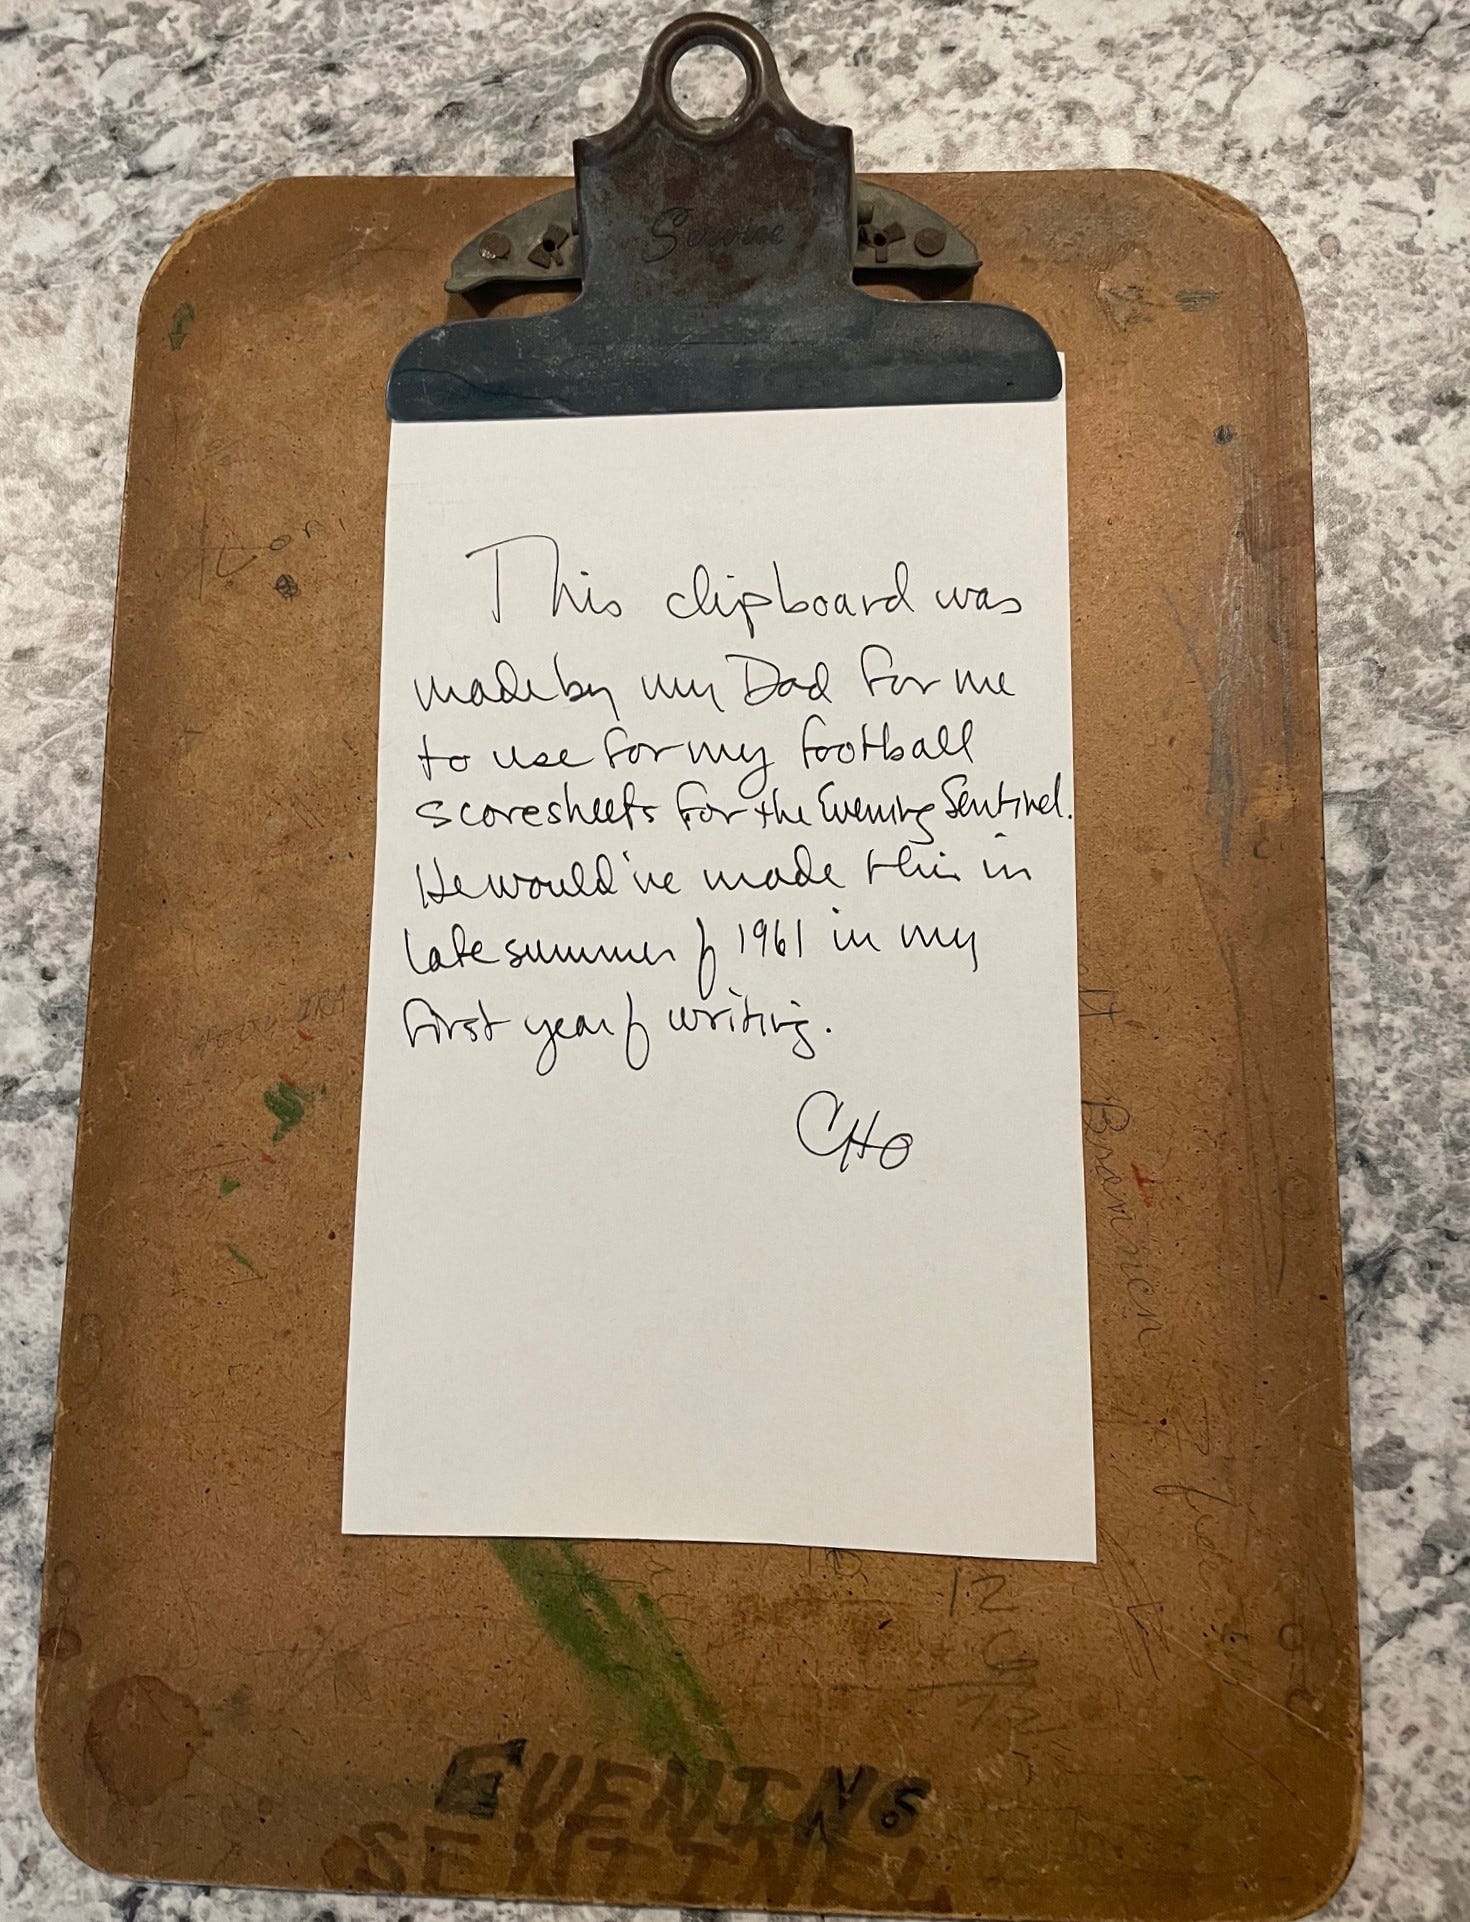 Service
This clipboard was
made by my Dad for me
to use for my football
scoresheets for the Evening Sentinel.
He would've made this in
late summer of 1961 in my
first year of writing.
CHO
Brannen
12
EVENING
SENTINEL